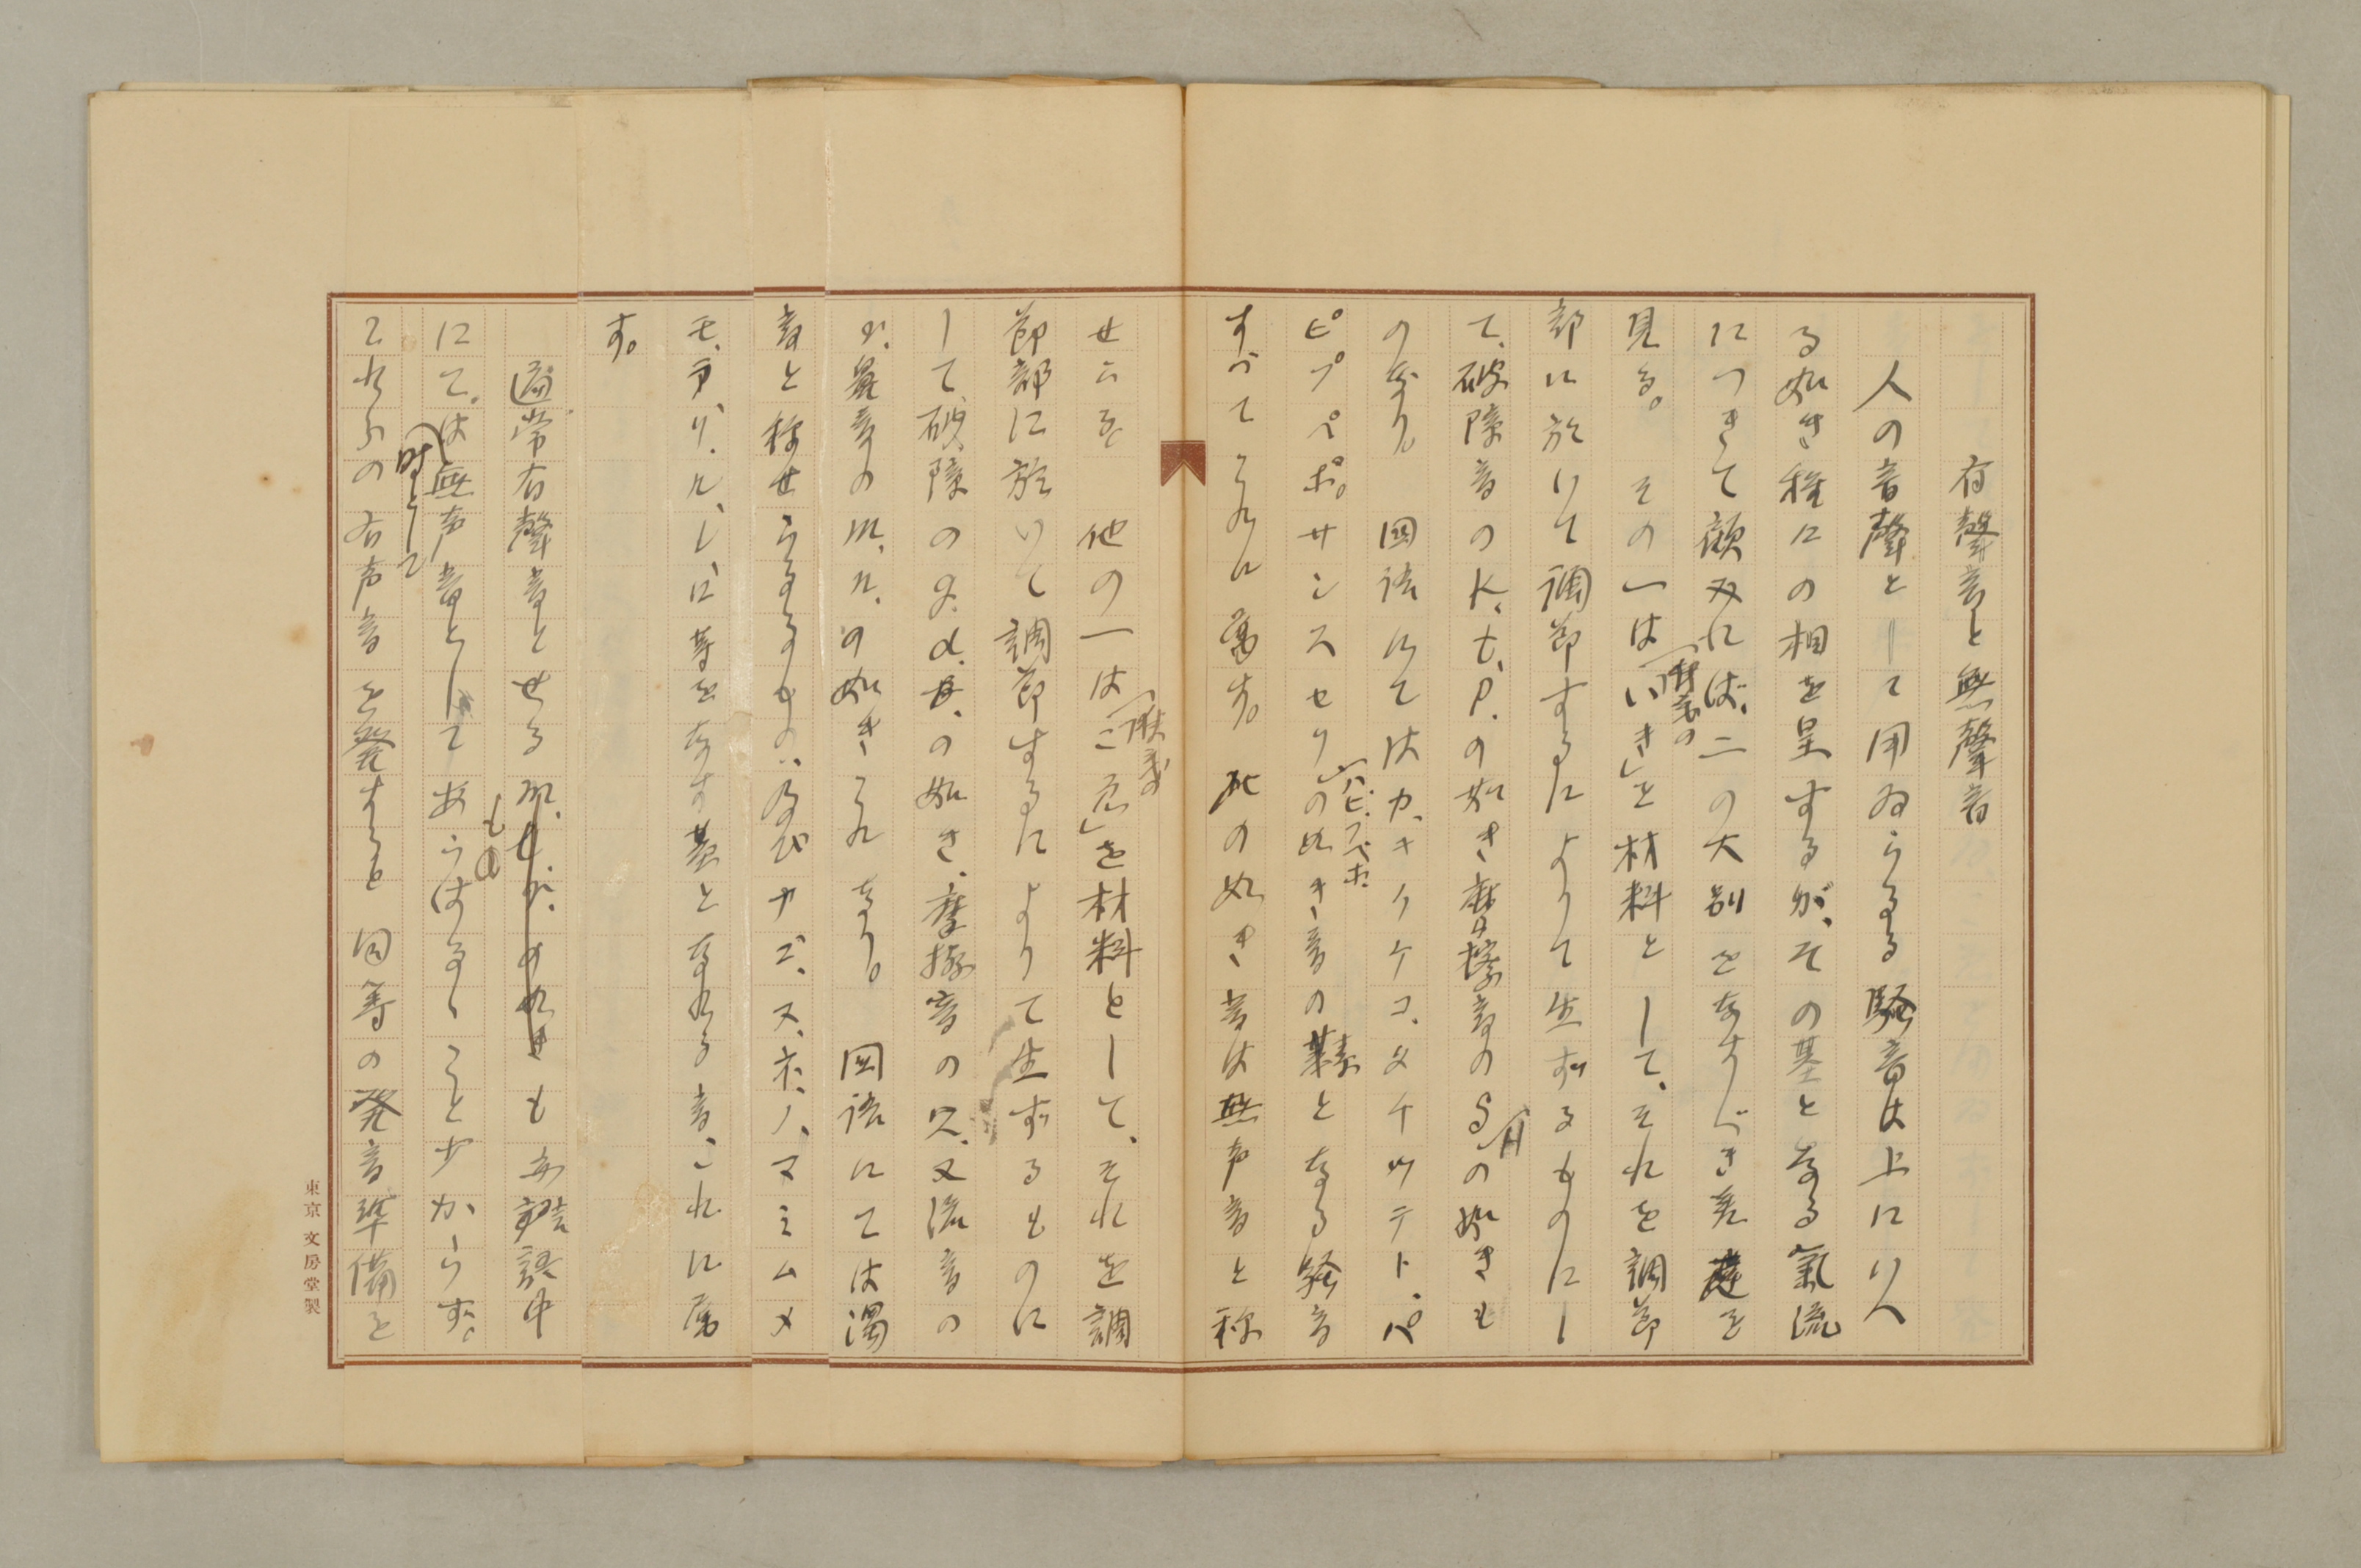 有聲音と無聲音
人の音聲として用ゐらるる騒音は上にいへ
る如き種々の相を呈するが、その基となる氣流
につきて顧みれば、二の大別をなすべき差違を
見る。その一は「いき」を材料として、それを調節
部に於いて調節するによりて生ずるものにし
て、破障音のk、t、p、の如き摩擦音のs、hの如きも
のなり。國語にてはカ、キクケコ、タチツテト、パ
ピプペポ。サシスセソ(ハ、ヒ、フ、ヘ、ホ、)の如き音の基となる騒音
すべてこれに属す。此の如き音は無声音と称
せらる。他の一は「こゑ」を材料として、それを調
節部に於いて調節するによりて生ずるものに
して、破障のg、d、b、の如き、摩擦音のz、又流音の
r、鼻音のm、n、の如きこれなり。國語にては濁
音と称せらるるもの、及びナニ、ヌ、ネ、ノ、マミムメ
モ、ラ、リ、ル、レ、ロ等をなす基となれる音、これに属
す。
通常有聲音とせるもの も 談話中
にては(時として)無声音としてあらはるること少からず。
これらの有声音を発すると同等の発音準備を
東京 文房堂製